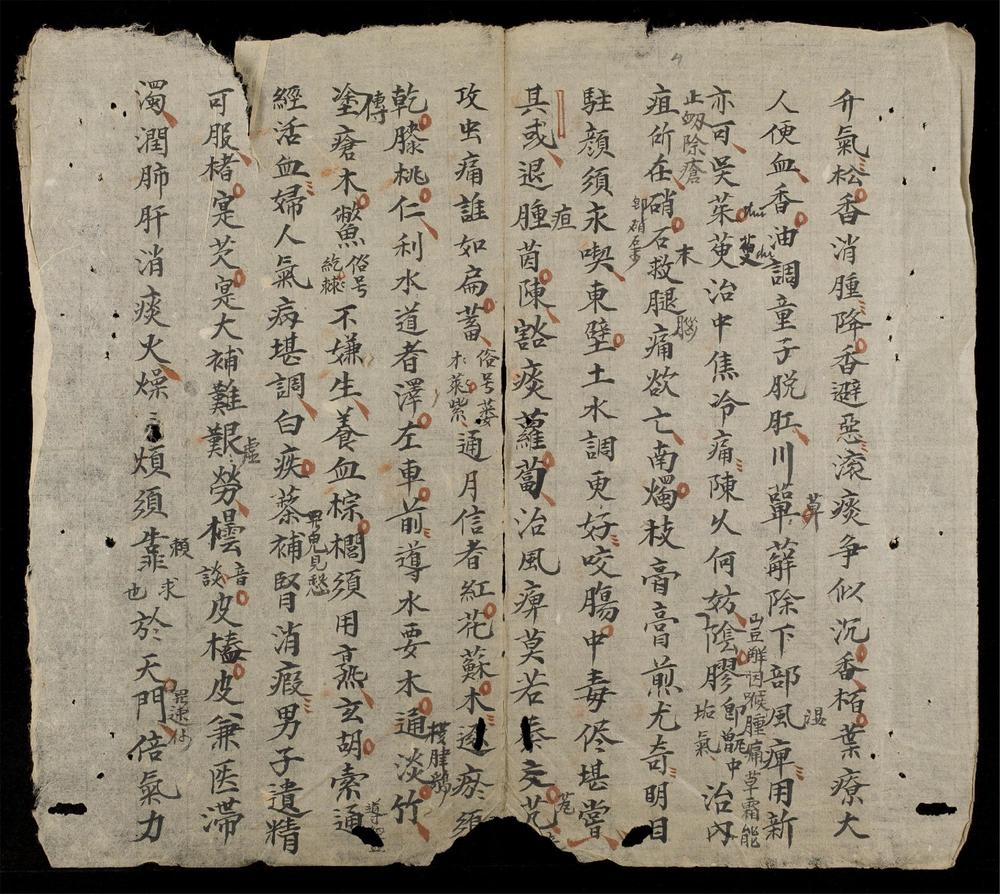 升氣松香消腫降香避惡滚痰争似沉香栢葉療大
人便血香油調童子脱肛川萆薢除下部風痺用新
草
濕
亦可吴茱萸治中焦冷痛陳久何妨陰膠即甑中垢氣治內
山豆解咽喉腫痛草霜能
止衂除瘡
疽所在硝石救腿痛欲亡南燭枝膏膏煎尤奇明目
腦
駐顔須永喫東壁土水調更好咬腸中毒侭堪嘗
其或退腫茵陳豁痰蘿蔔治風痺莫若秦交芃
疸
攻虫痛誰如扁蓄通月信者紅花蘇木逐瘀須
俗号萎
乾膝桃仁利水道者澤左車前導水要木通淡竹
塗瘡木鱉不嫌生養血棕櫚須用熹玄胡索通
傅
俗号
經活血婦人氣病堪調白疾藜補腎消瘕男子遺精
可服楮寔芡寔大補難艱勞櫑皮榼皮兼医滯
虚
音談
濁潤肺肝消痰火燥三煩須靠於天門倍氣力
賴求也